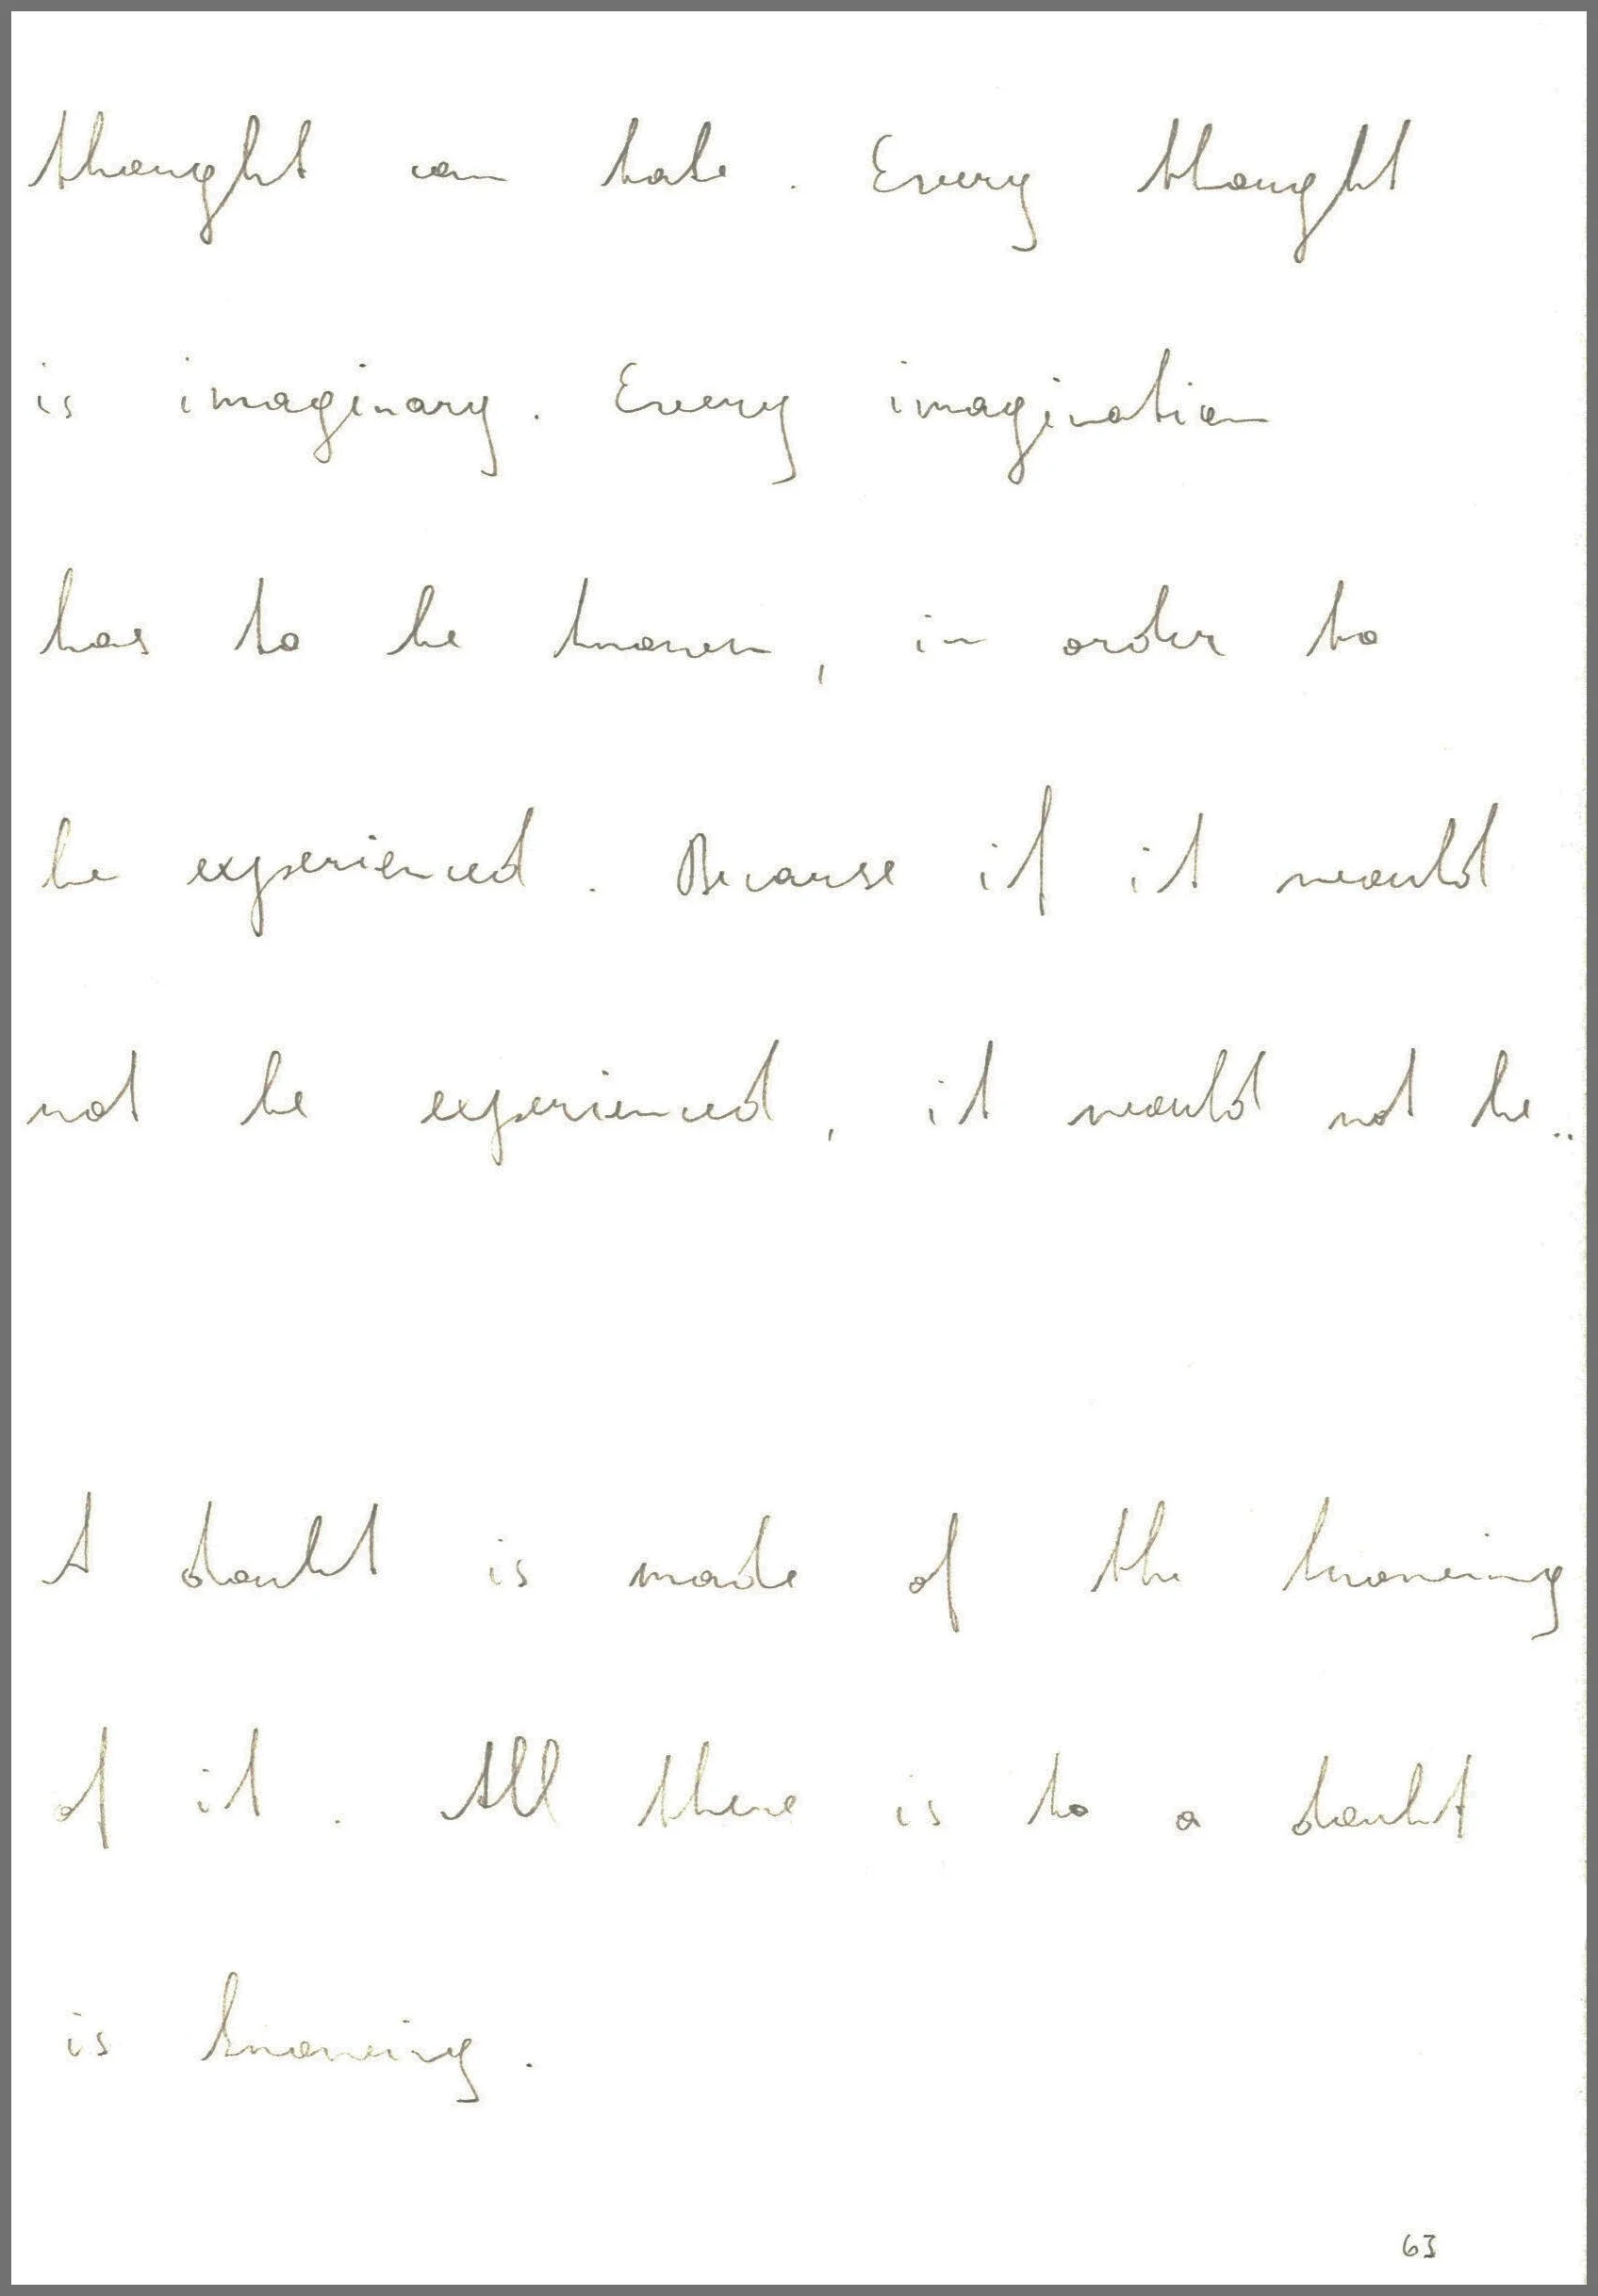 thought can take. Every thought
is imaginary. Every imagination
has to be known, in order to
be experienced. Because if it would
not be experienced, it would not be..
A doubt is made of the knowing
of it. All there is to a doubt
is knowing.
63